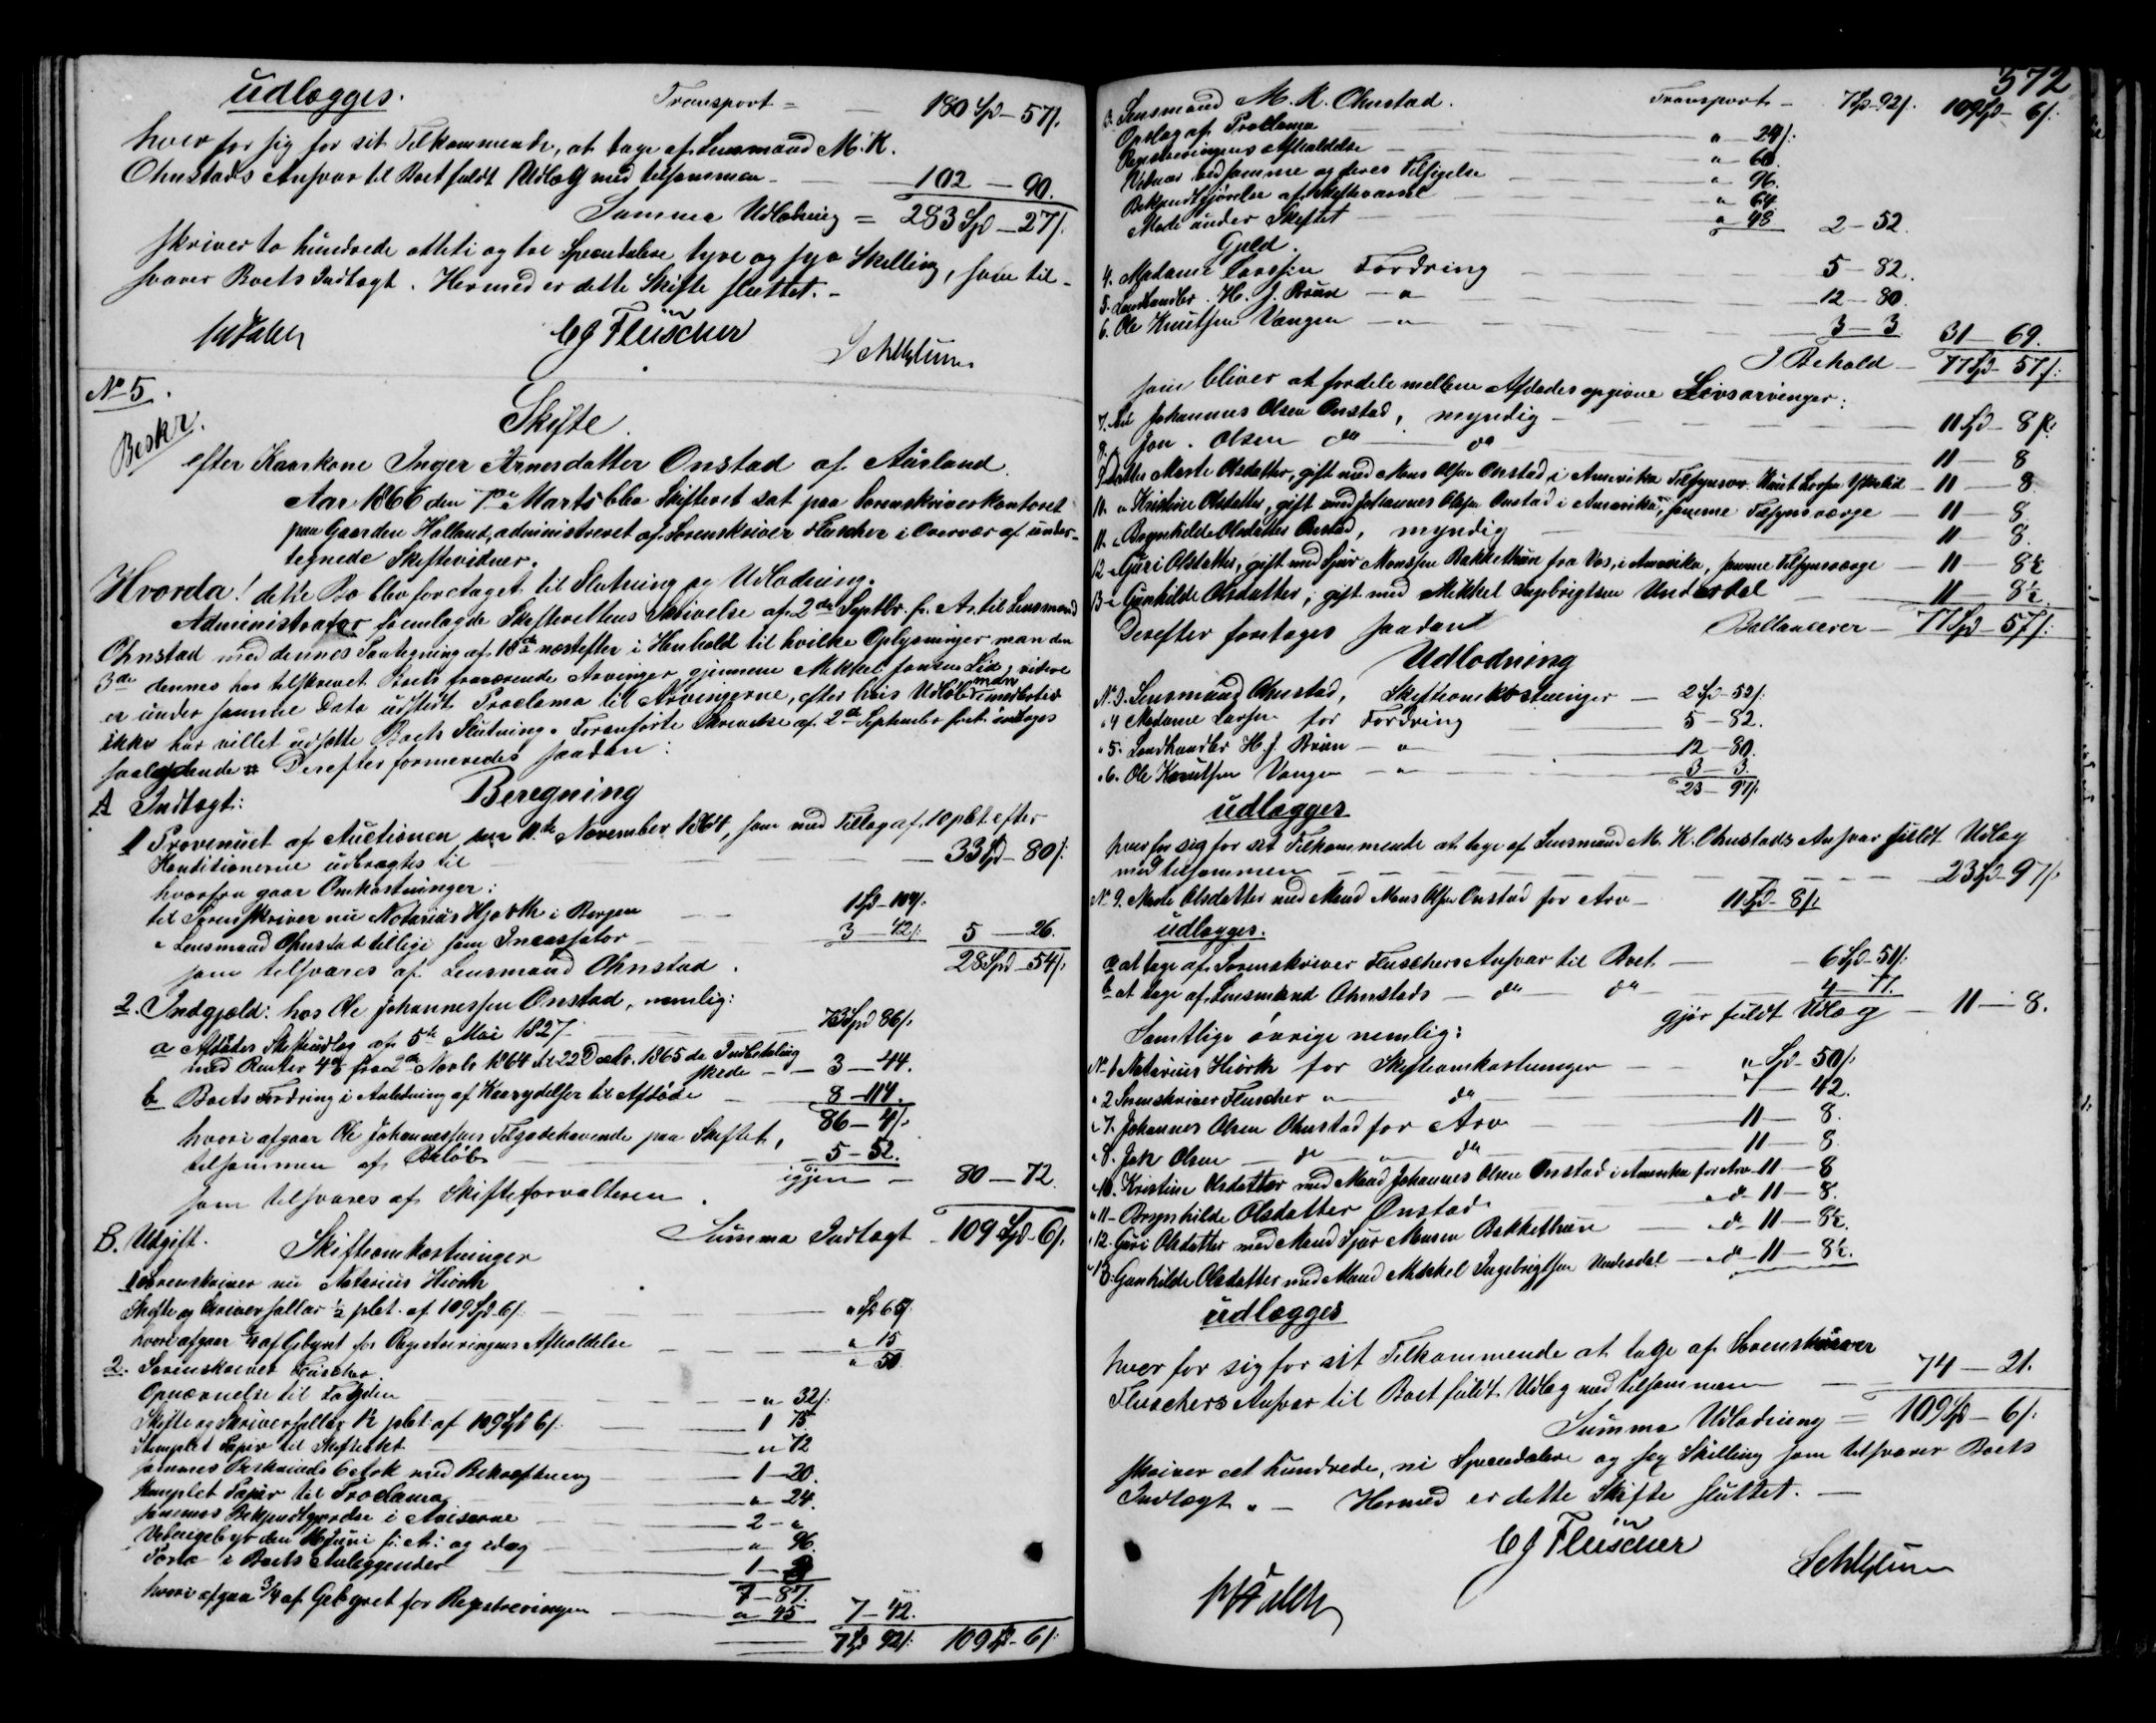 udlægges.
Transport = 180 Spd - 57 s.
hver for sig for sit Tilkommende, at tage af Lensmand M. K.
Ohnstads Ansvar til Boet fuldt Udlæg med tilsammen - 102 - 90.
Summa Udlodning = 283 Spd - 27 s.
skriver to hundrede otteti og tre Speciedalere tyve og syv Skilling, som til-
svarer Boets Indtægt. Hermed er dette Skifte sluttet. -
CJ Fleischer
No 5.
Beskr.
Skifte
efter Kaarkone Inger Arnesdatter Onstad af Aurland.
Aar 1866 den 7de Marts blev Skifteret sat paa Sorenskriverkontoret
paa Gaarden Holland, administreret af Sorenskriver Fleischer i Overvær af under-
tegnede Skiftevidner.
Hvorda! dette Bo blev foretaget til Slutning og Udlodning.
Administrator fremlagde Skifterettens Skrivelse af 2de Septbr. f. A. til Lensmand
Ohnstad med dennes Paategning af 18de næstefter i Henhold til hvilke Oplysninger man den
3de dennes har tilskrevet Boets fraværende Arvinger gjennem Mikkel Jansen Lid, videre
er under samme Dato udstedt Proclama til Arvingerne, efter hvis Udløb man
ikke har villet udsætte Boets Slutning. Foranførte Skrivelse af 2de September
saalydende # Derefter formeredes saadan:
Beregning
A Indtægt:
1 Provenuet af Auctionen den 11te November 1864, som med Tillæg af 10 pCt. efter
Konditionerne udbragtes til - 33 Spd - 80 s.
hvorfra gaar Omkostninger:
til Sorenskriver nu Notarius Hjorth i Bergen 1 Spd - 104 s.
" Lensmand Ohnstad tillige som Incassator - 3 - 42 s. 5 - 26.
som tilsvares af Lensmand Ohnstad. 28 Spd - 54 s.
2. Indgjæld: hos Ole Johannessen Onstad, nemlig:
a Afdødes Skifteudlæg af 5te Mai 1827. 73 Spd 86 s.
med Renter 4% fra 2de Novbr. 1864 til 22 Decbr. 1865 da Indbetaling
skede - 3 - 44.
b Boets Fordring i Anledning af Kaarydelser til Afdøde - 8 - 114.
86 - 4 s.
hvori afgaar Ole Johannessens Tilgodehavende paa Skiftet,
tilsammen af Beløb 5 - 52.
igjen - 80 - 72.
som tilsvares af Skifteforvalteren.
Summa Indtægt - 109 Spd - 6 s.
B. Udgift.
Skifteomkostninger
1 Sorenskriver nu Notarius Hiorth
Skifte og Skriversallær 1/2 pCt. af 109 Spd 6 s. " Spd 65 s.
hvori afgaar 1/4 af Gebyret for Registreringens Afholdelse " 15
2. Sorenskriver Fleischer " 50
Opnævnelse til Fogden - " 32 s.
Skifte og Skriversallær 1 1/2 pCt. af 109 Spd 6 s. 1 75
Stemplet Papir til Skifteaktet " 72
sammes Beskrivelse 6 Ark med Bekræftning 1 - 20.
stemplet Papir til Proclama " 24.
sammes Bekjendtgjørelse i Aviserne 2 - "
Vidnegebyr den Juni f. A. og idag " 96.
Porto i Boets Anliggender 1 -
7 - 87.
hvori afgaar 3/4 af Gebyret for Registreringen " 45 7 - 42.
7 Spd 92 s. 109 Spd - 6 s.
572
Transport - 7 Spd - 92 s. 109 Spd - 6 s.
3. Lensmand M. K. Ohnstad.
Opslag af Proclama " - 24 s.
Registreringens Afholdelse " - 60.
Vidner ved samme og deres Tilsigelse " 96.
Bekjendtgjørelse af Skiftevarsel " 64.
Møde under Skiftet " 48 2 - 52.
Gjeld.
4. Madame Larssen Fordring 5 - 82.
5. Landhandler H. J. Bruun - " 12 - 80.
6. Ole Knutsen Vangen - " 3 - 3 31 - 69.
I Behold - 77 Spd - 57 s.
som bliver at fordele mellem Afdødes opgivne Livsarvinger:
7. Søn Johannes Olsen Onstad, myndig 11 Spd - 8 s.
8. " Jon Olsen do do 11 - 8
9. Datter Marte Olsdatter, gift med Mons Olsen Onstad i Amerika Tilsynsv. Knut Larsen - 11 - 8
10. " Kristine Olsdatter, gift med Johannes Olsen Onstad i Amerika, samme Tilsynsværge - 11 - 8
11. " Brynhilde Olsdatter Onstad, myndig 11 - 8.
12 - Guri Olsdatter, gift med Sjur Monssen Bakkethun fra Vos, i Amerika, samme Tilsynsværge - 11 - 8 1/2
13 - Gunhilde Olsdatter, gift med Mikkel Ingebrigtsen Underdal - 11 - 8 1/2.
Ballancerer - 77 Spd - 57 s.
Derefter foretages saadan
Udlodning
No 3. Lensmand Ohnstad, Skifteomkostninger - 2 Spd - 52 s.
" 4 Madame Larsen for Fordring 5 - 82.
" 5. Landhandler H. J. Bruun - " 12 - 80.
" 6. Ole Knutsen Vangen - " 3 - 3.
23 - 97 s.
udlægges
hver for sig for sit Tilkommende at tage af Lensmand M. K. Ohnstads Ansvar fuldt Udlæg
med tilsammen 23 Spd - 97 s.
No 9. Marte Olsdatter med Mand Mons Olsen Onstad for Arv - 11 Spd - 8 s.
udlægges.
a at tage af Sorenskriver Fleischers Ansvar til Boet - 6 Spd - 51 s.
b at tage af Lensmand Ohnstads - do do - 4 - 77.
gjør fuldt Udlæg - 11 - 8.
Samtlige øvrige nemlig:
No 1 Notarius Hiorth for Skifteomkostninger " Spd - 50 s.
" 2 Sorenskriver Fleischer " do 7 - 42.
" 7. Johannes Olsen Ohnstad for Arv 11 - 8.
" 8. Jon Olsen - do " do 11 - 8
" 10. Kristine Olsdatter med Mand Johannes Olsen Onstad i Amerika for Arv - 11 - 8
" 11 - Brynhilde Olsdatter Onstad " do 11 - 8.
" 12 - Guri Olsdatter med Mand Sjur Monsen Bakkethun " do - 11 - 8 1/2.
" 13. Gunhilde Olsdatter med Mand Mikkel Ingebrigtsen Underdal - " do - 11 - 8 1/2.
udlægges
hver for sig for sit Tilkommende at tage af Sorenskriver
Fleischers Ansvar til Boet fuldt Udlæg med tilsammen - 74 - 21.
Summa Udlodning = 109 Spd - 6 s.
skriver eet hundrede, ni Speciedalere og sex Skilling som tilsvarer Boets
Indtægt. - Hermed er dette Skifte sluttet. -
CJ Fleischer